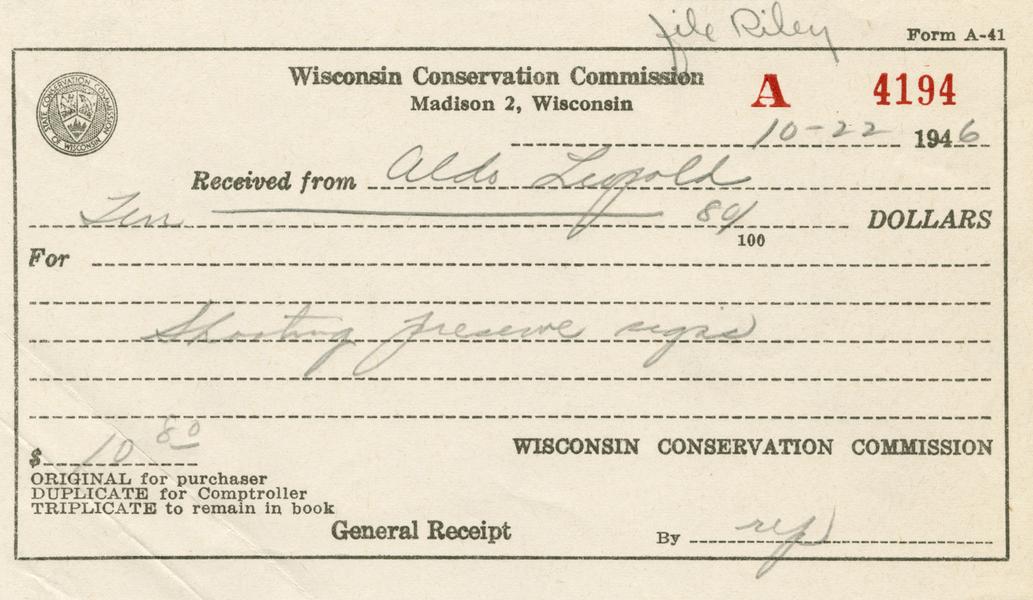 file Riley
Form A-41
STATE CONSERVATION COMMISSION OF WISCONSIN
Wisconsin Conservation Commission
Madison 2, Wisconsin
A 4194
10-22 1946
Received from Aldo Leopold
Ten 80/100 DOLLARS
For
Shooting preserve signs
$ 10 80
WISCONSIN CONSERVATION COMMISSION
ORIGINAL for purchaser
DUPLICATE for Comptroller
TRIPLICATE to remain in book
General Receipt
By